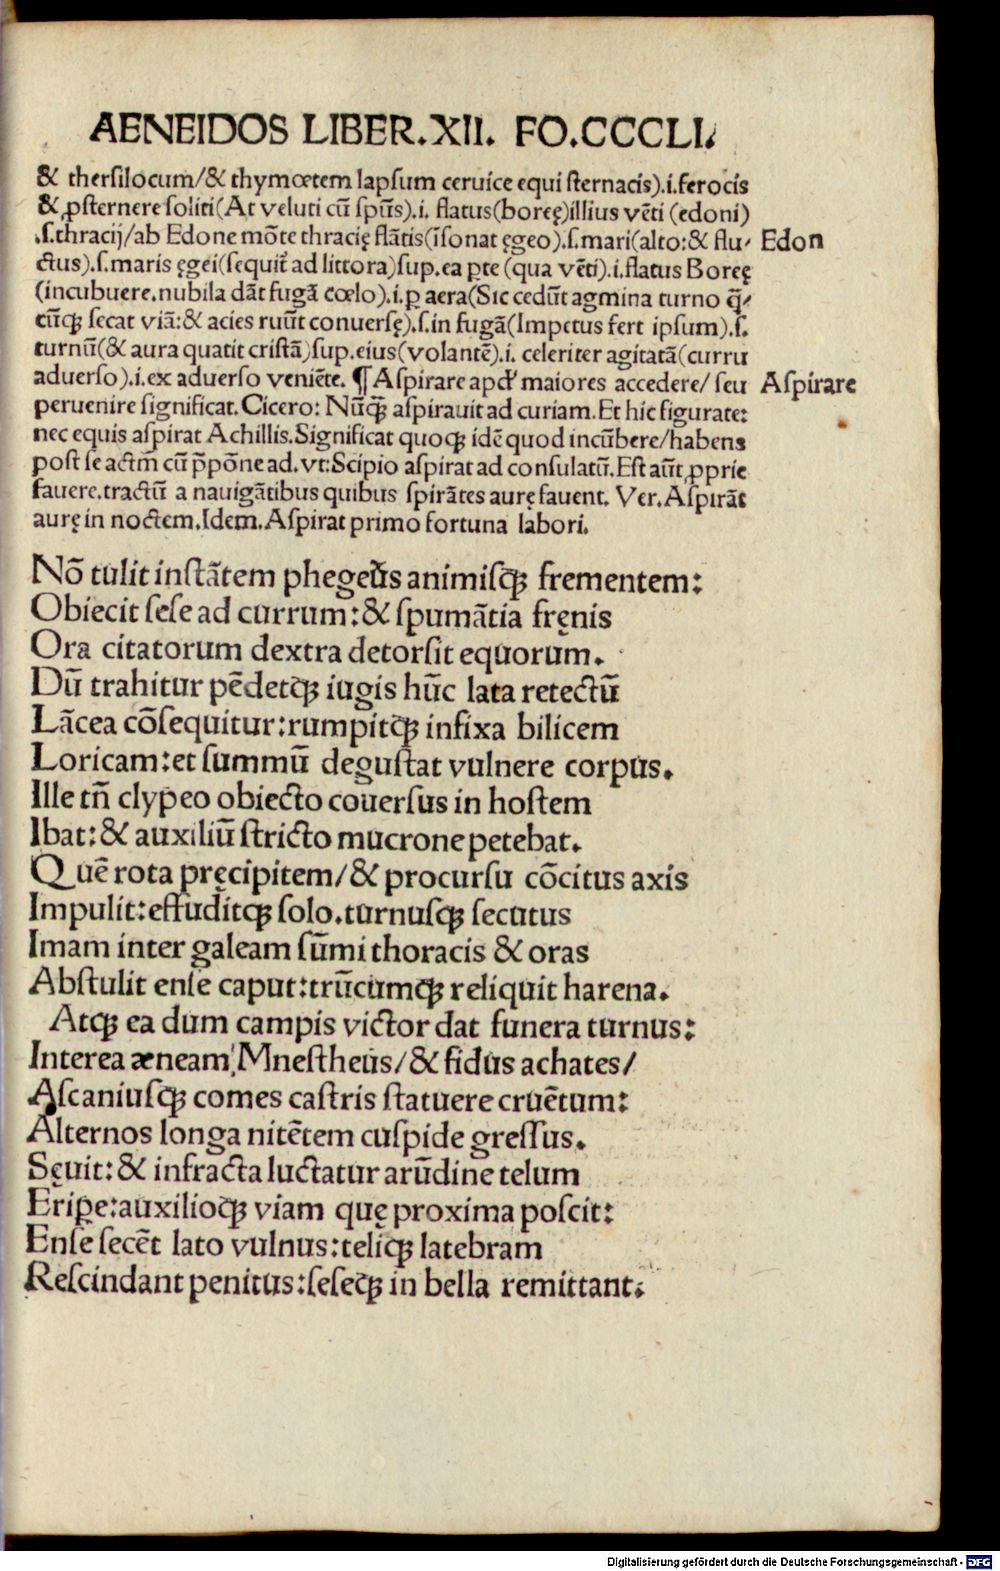 AENEIDOS LIBER.XII. FO.CCCLI.
& thersilocum/& thymœtem lapsum ceruice equi sternacis).i.ferocis
& ꝓsternere soliti(At veluti cū spūs).i. flatus(boreę)illius vēti (edoni)
.s.thracij/ab Edone mōte thracię flātis(īsonat ęgeo).s.mari(alto:& flu- Edon
ctus).s.maris ęgei(sequit̄ ad littora)sup.ea ꝑte (qua vēti).i.flatus Boreę
(incubuere.nubila dāt fugā cœlo).i.ꝑ aera(Sic cedūt agmina turno q̄-
cūqꝫ secat viā:& acies ruūt conuersę).s.in fugā(Impetus fert ipsum).s.
turnū(& aura quatit cristā)sup.eius(volantē).i. celeriter agitatā(curru
aduerso).i.ex aduerso veniēte. ¶ Aspirare apd' maiores accedere/ seu Aspirare
peruenire significat.Cicero: Nūqꝫ aspirauit ad curiam.Et hic figurate:
nec equis aspirat Achillis.Significat quoqꝫ idē quod incūbere/habens
post se actm̄ cū p̄pōne ad.vt:Scipio aspirat ad consulatū.Est aūt ꝓprie
fauere.tractū a nauigātibus quibus spirātes aurę fauent. Ver.Aspirāt
aurę in noctem.Idem.Aspirat primo fortuna labori.
Nō tulit instātem phegeūs animisqꝫ frementem:
Obiecit sese ad currum:& spumātia fręnis
Ora citatorum dextra detorsit equorum.
Dū trahitur pēdetqꝫ iugis hūc lata retectū
Lācea cōsequitur:rumpitqꝫ infixa bilicem
Loricam:et summū degustat vulnere corpus.
Ille tn̄ clypeo obiecto couersus in hostem
Ibat:& auxiliū stricto mucrone petebat.
Quē rota pręcipitem/& procursu cōcitus axis
Impulit:effuditqꝫ solo.turnusqꝫ secutus
Imam inter galeam sūmi thoracis & oras
Abstulit ense caput:trūcumqꝫ reliquit harena.
Atqꝫ ea dum campis victor dat funera turnus:
Interea æneam Mnestheus/& fidus achates/
Ascaniusqꝫ comes castris statuere cruētum:
Alternos longa nitētem cuspide gressus.
Sęuit:& infracta luctatur arūdine telum
Eripe:auxilioqꝫ viam quę proxima poscit:
Ense secēt lato vulnus:teliqꝫ latebram
Rescindant penitus:seseqꝫ in bella remittant.
Digitalisierung gefördert durch die Deutsche Forschungsgemeinschaft - DFG